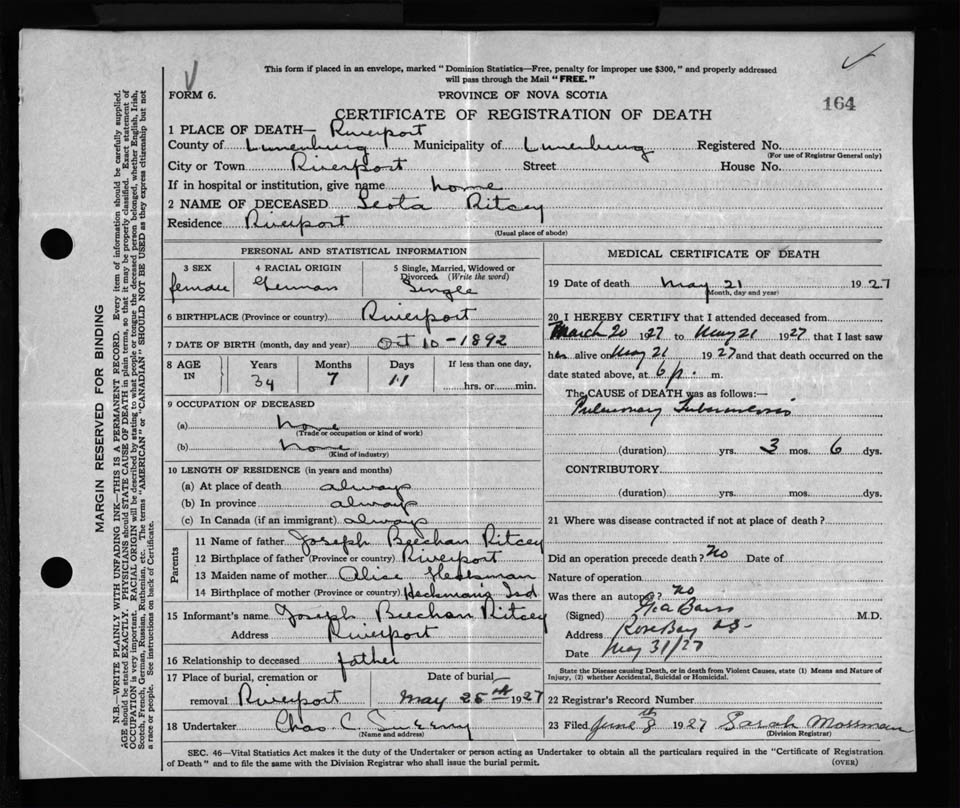 This form if placed in an envelope, marked "Dominion Statistics—Free, penalty for improper use $300," and properly addressed
will pass through the Mail "FREE."
FORM 6.
PROVINCE OF NOVA SCOTIA
164
CERTIFICATE OF REGISTRATION OF DEATH
1 PLACE OF DEATH— Riverport
County of Lunenburg Municipality of Lunenburg Registered No.
(For use of Registrar General only)
City or Town Riverport Street House No.
If in hospital or institution, give name home
2 NAME OF DECEASED Leota Ritcey
Residence Riverport
(Usual place of abode)
MARGIN RESERVED FOR BINDING
N.B.—WRITE PLAINLY WITH UNFADING INK—THIS IS A PERMANENT RECORD. Every item of information should be carefully supplied.
AGE should be stated EXACTLY. PHYSICIANS should STATE CAUSE OF DEATH in plain terms, so that it may be properly classified. Exact statement of
OCCUPATION is very important. RACIAL ORIGIN will be described by stating to what people or tongue the deceased person belonged, whether English, Irish,
Scotch, French, German, Russian, Ruthenian, etc. The terms "AMERICAN" or "CANADIAN" SHOULD NOT BE USED as they express citizenship but not
a race or people. See instructions on back of Certificate.
PERSONAL AND STATISTICAL INFORMATION
3 SEX female
4 RACIAL ORIGIN German
5 Single, Married, Widowed or
Divorced (Write the word)
Single
6 BIRTHPLACE (Province or country) Riverport
7 DATE OF BIRTH (month, day and year) Oct 10 - 1892
8 AGE IN
Years 34
Months 7
Days 11
If less than one day,
hrs. or min.
9 OCCUPATION OF DECEASED
(a) none
(Trade or occupation or kind of work)
(b) none
(Kind of industry)
10 LENGTH OF RESIDENCE (in years and months)
(a) At place of death always
(b) In province always
(c) In Canada (if an immigrant) always
Parents
11 Name of father Joseph Beechan Ritcey
12 Birthplace of father (Province or country) Riverport
13 Maiden name of mother Alice
14 Birthplace of mother (Province or country) Heckmans Isd
15 Informant's name Joseph Beechan Ritcey
Address Riverport
16 Relationship to deceased father
17 Place of burial, cremation or
removal Riverport
Date of burial
May 25th 1927
18 Undertaker Chas C. Sweeny
(Name and address)
MEDICAL CERTIFICATE OF DEATH
19 Date of death May 21 1927
(Month, day and year)
20 I HEREBY CERTIFY that I attended deceased from
March 20 1927 to May 21 1927 that I last saw
her alive on May 21 1927 and that death occurred on the
date stated above, at 6 p. m.
The CAUSE of DEATH was as follows:—
Pulmonary Tuberculosis
(duration) yrs. 3 mos. 6 dys.
CONTRIBUTORY
(duration) yrs. mos. dys.
21 Where was disease contracted if not at place of death?
Did an operation precede death? no Date of
Nature of operation
Was there an autopsy? no
(Signed) M.D.
Address Rose Bay NS
Date May 31/27
State the Disease causing Death, or in death from Violent Causes, state (1) Means and Nature of
Injury, (2) whether Accidental, Suicidal or Homicidal.
22 Registrar's Record Number
23 Filed June 8th 1927 Sarah Mossman
(Division Registrar)
SEC. 46—Vital Statistics Act makes it the duty of the Undertaker or person acting as Undertaker to obtain all the particulars required in the "Certificate of Registration
of Death" and to file the same with the Division Registrar who shall issue the burial permit.
(OVER)